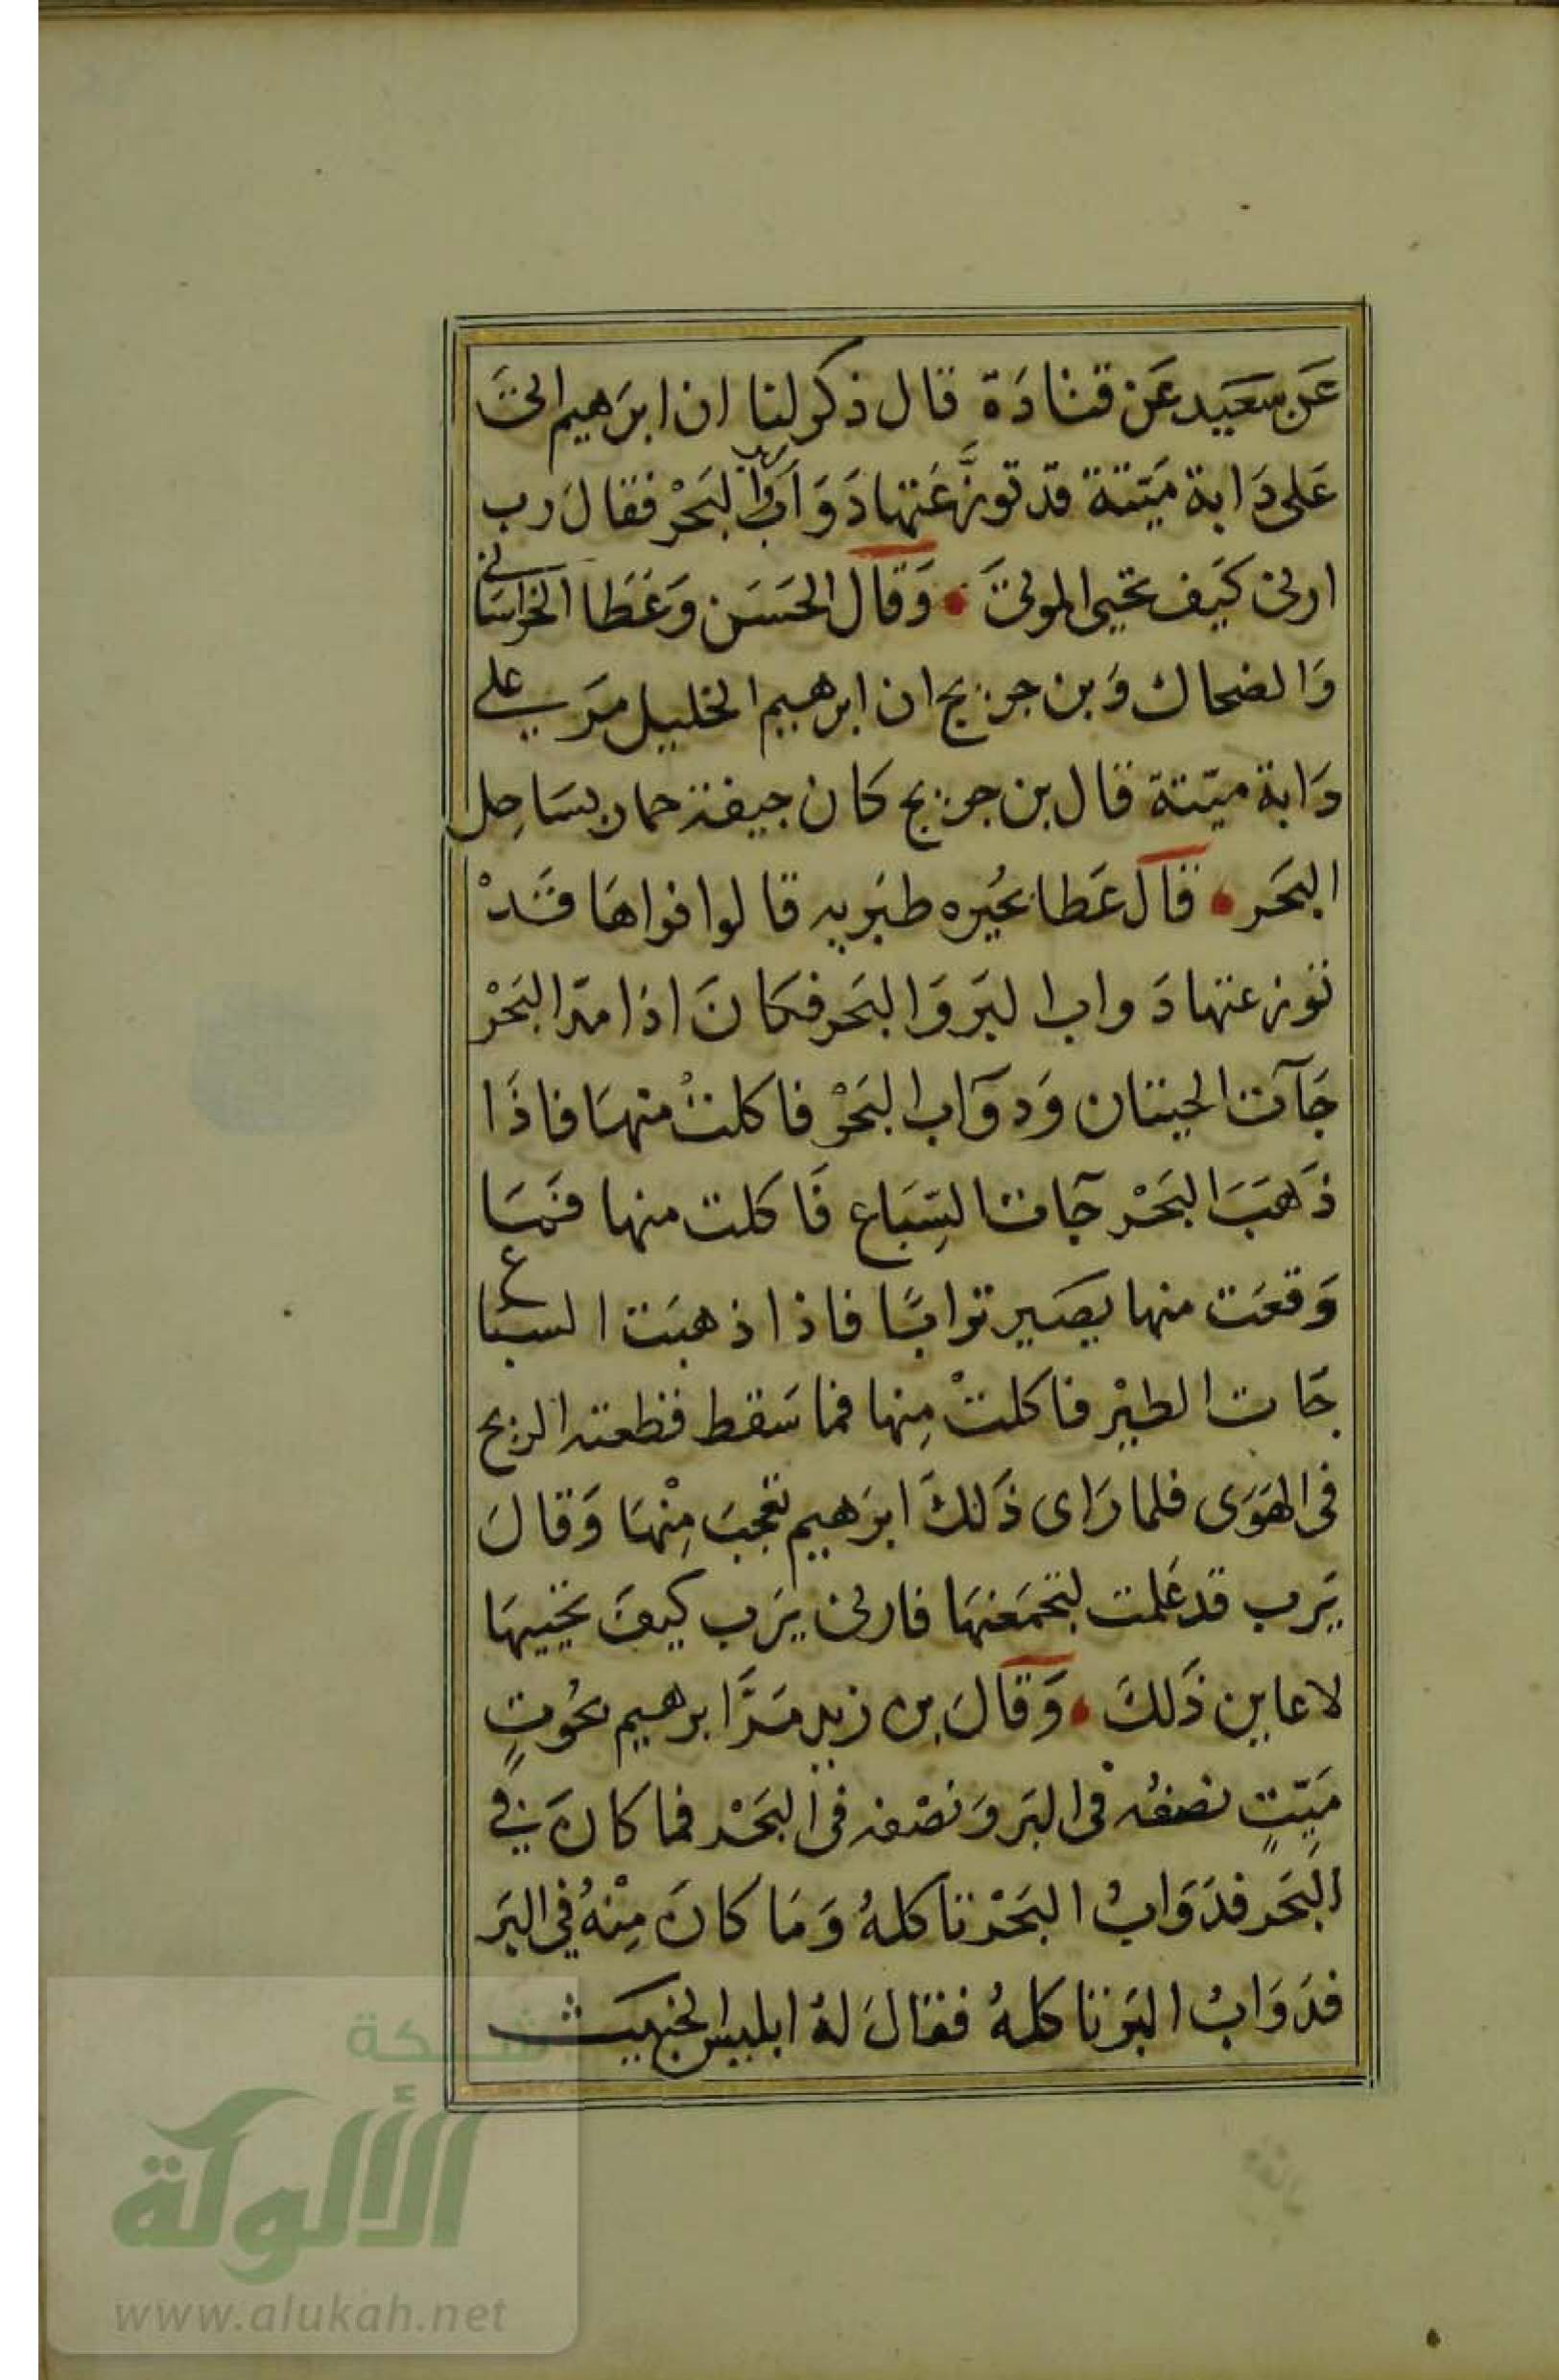 عَن سعَيد عَن قتادَة قال ذكر لنا ان ابرَهيم اتىَ
عَلى دَابة مَيّتة قد توزَّعَتها دَوَآب البَحْر فقالَ رب
ارنى كيَف تحيي الموتىَ • وَقال الحَسَن وَعَطا الخراسَانى
وَالضحاك وَبن جريج ان ابرهيم الخليل مرَ على
دَابة ميّتة قال بن جريج كان جيفة حمار بسَاحِل
البحَر • قالَ عَطا بحُيَره طبَريه قالوا فراهَا قَدْ
توزعتها دَواب البَر وَالبحَر فكانَ اذا مدّ البَحْر
جَآت الحيتان وَدوَآب البَحْر فاكلتْ منهَا فاذَا
ذَهبَ البَحْر جَآت السِّبَاع فَاكلت منها فمَا
وَقعَت منها يصَير ترابًا فاذا ذهبَت السباع
جَات الطيْر فاكلتْ مِنها فما سَقط قطعته الريح
فى الهوَى فلما رَاى ذَلكَ ابرَهيم تعجبَ مِنْهَا وَقالَ
يَرب قد عَلمت لتجمَعنهَا فارنى يَرَب كيفَ تحييهَا
لاعاين ذَلكَ • وَقالَ بن زيد مَرَّ ابرهيم بحُوتٍ
مَيّتٍ نصفُه فى البَر وَنصْفه فى البَحْر فما كانَ في
البَحر فدَوَابُ البَحْر تاكلهُ وَمَا كانَ مِنْهُ في البَر
فدَوَابُ البَر تاكلهُ فقالَ لهُ ابليس الخبيث
شبكة
الألوكة
www.alukah.net